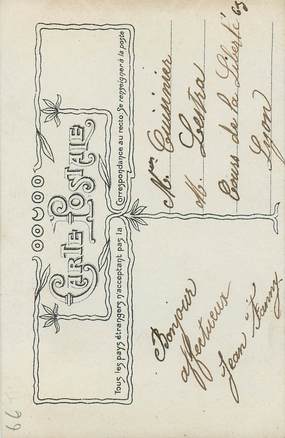 CARTE POSTALE
Tous les pays étrangers n'acceptant pas la Correspondance au recto, se renseigner à la poste
Bonjour
affectueux
Jean Fanny
M. Lestra
Cours de la Liberté 63
Lyon
66